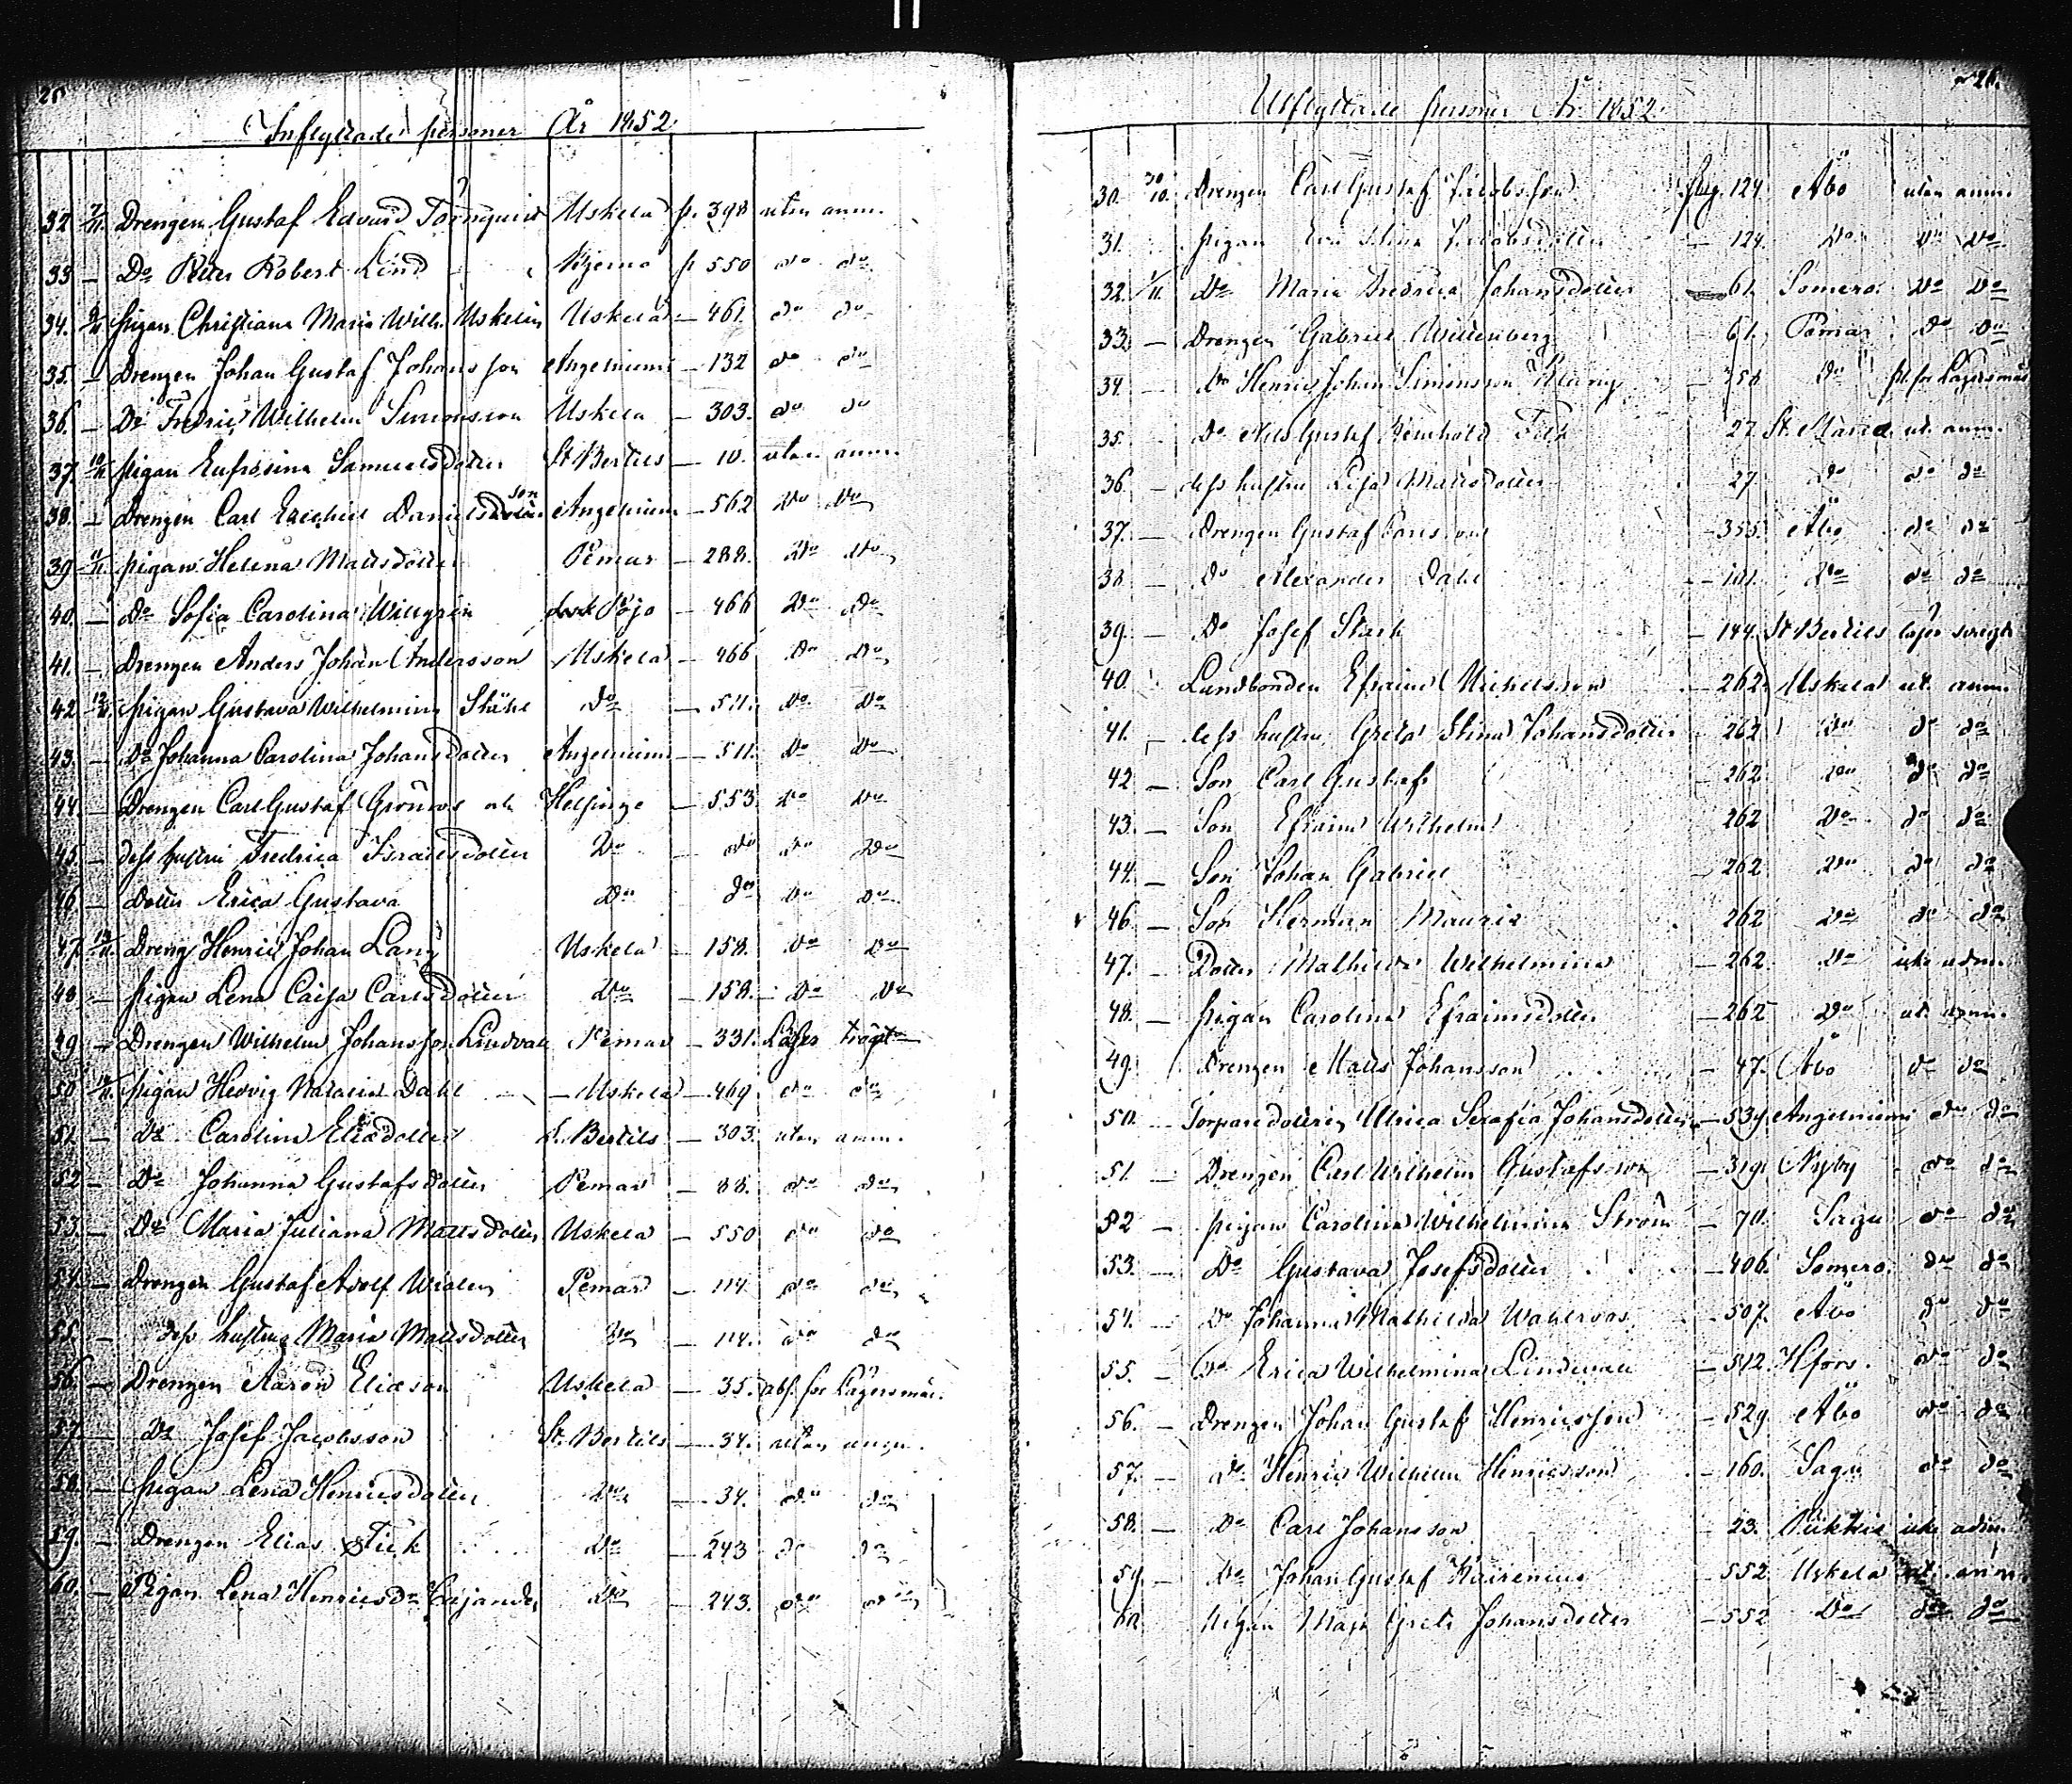 Inflyttade personer År 1852.
32. 7/11. Drengen Gustaf Edvard Törnqvist Uskela p. 398 utan anm.
33 — Do Peter Robert Lind Kjemo p 550 do do
34. 9/11 Pigan Christiana Maria Wilh. Uskelin Uskela — 461. do do
35. — Drengen Johan Gustaf Johansson Angelniemi — 132 do do
36. — Do Fredric Wilhelm Simonsson Uskela — 303. do do
37. 10/11 Pigan Eufrosina Samuelsdotter St Bertils — 10. utan anm.
38. — Drengen Carl Ezechiel Danielsson Angelniemi — 562 Do Do
39 11/11 Pigan Helena Mattsdotter Pemar — 288. Do Do
40. — Do Sofia Carolina Willgrén Pojo — 466 Do Do
41. — Drengen Anders Johan Andersson Uskela — 466 Do Do
42 12/11. Pigan Gustava Wilhelmina Ståhl Do — 511. Do Do
43. — Do Johanna Carolina Johansdotter Angelniemi — 511. Do Do
44. — Drengen Carl Gustaf Grönroos och Helsinge — 553 Do Do
45. — dess hustru Fredrica Israelsdotter Do — do do Do
46. — Dotter Erica Gustava Do do Do Do
47. 13/11. Dreng Henric Johan Lang Uskela — 158. Do Do
48. — Pigan Lena Caisa Carlsdotter Do — 158. Do Do
49 — Drengen Wilhelm Johansson Lindvall Pemar — 331. Läser trögt
50 14/11. Pigan Hedvig Natalia Dahl — Uskela — 469 do do
51. — Do Carolina Eliædotter S. Bertils — 303. utan anm.
52 — Do Johanna Gustafsdotter Pemar — 88. do do
53. — Do Maria Juliana Mattsdotter Uskela — 550 do do
54 — Drengen Gustaf Adolf Widlen Pemar — 114 do do
55 — dess hustru Maria Mattsdotter Do — 114. do do
56. — Drengen Aaron Eliæson Uskela — 35. abs. för Lägersmål.
57 — Do Josef Jacobsson St. Bertils — 34. utan anm.
58. — Pigan Lena Henricsdotter Do — 34. do do
59. — Drengen Elias Fick Do — 243 do do
60. — Pigan Lena Henricsdr Cajander Do — 243. do do
26.
Utflyttade personer År 1852.
30. 30/10. Drengen Carl Gustaf Jacobsson pag. 124 Åbo utan anm.
31. Pigan Eva Stina Jacobsdotter — 124. Do Do Do
32. 1/11. Do Maria Fredrica Johansdotter 61. Somero. Do Do
33. — Drengen Gabriel Willenberg 61. Pemar Do Do
34. — Do Henric Johan Simonsson Klang — 158 Do för Lägersmål
35. Do Nils Gustaf Reinhold Feth 27 St. Marie ut. anm.
36. — dess hustru Lisa Mattsdotter 27 Do do do
37. — Drengen Gustaf Carlsson — 355. Åbo do do
38. — Do Alexander Dahl — 101. Do do do
39. — Do Josef Stark — 144. St Bertils läser svagt
40. Landbonden Efraim Michelsson — 262. Uskela ut. anm.
41. — dess hustru Greta Stina Johansdotter 262 Do do do
42 — Son Carl Gustaf 262 Do do do
43. — Son Efraim Wilhelm 262 Do do do
44. — Son Johan Gabriel 262 Do do do
46. — Son Herman Mauriz 262 Do do do
47. — Dotter Mathilda Wilhelmina — 262. Do icke adm.
48. — Pigan Carolina Efraimsdotter — 262 Do ut. anm.
49. Drengen Matts Johansson — 47. Åbo do do
50. — Torparedottren Ulrica Serafia Johansdotter — 539 Angelniemi do do
51. — Drengen Carl Wilhelm Gustafsson — 319 Nyby do do
52 — Pigan Carolina Wilhelmina Ström — 70. Sagu do do
53. — Do Gustava Josefsdotter — 406. Somero. do do
54. — Do Johanna Mathilda Wahlroos — 507. Åbo do do
55. — Do Erica Wilhelmina Lindvall — 512. Hfors. do do
56. — Drengen Johan Gustaf Henricsson — 529 Åbo do do
57. — Do Henric Wilhelm Henricsson — 160. Sagu do do
58. — Do Carl Johansson — 23. Piikkie icke adm.
59. — Do Johan Gustaf Kairenius — 552 Uskela ut. anm.
60. Pigan Maja Greta Johansdotter — 552 Do do do